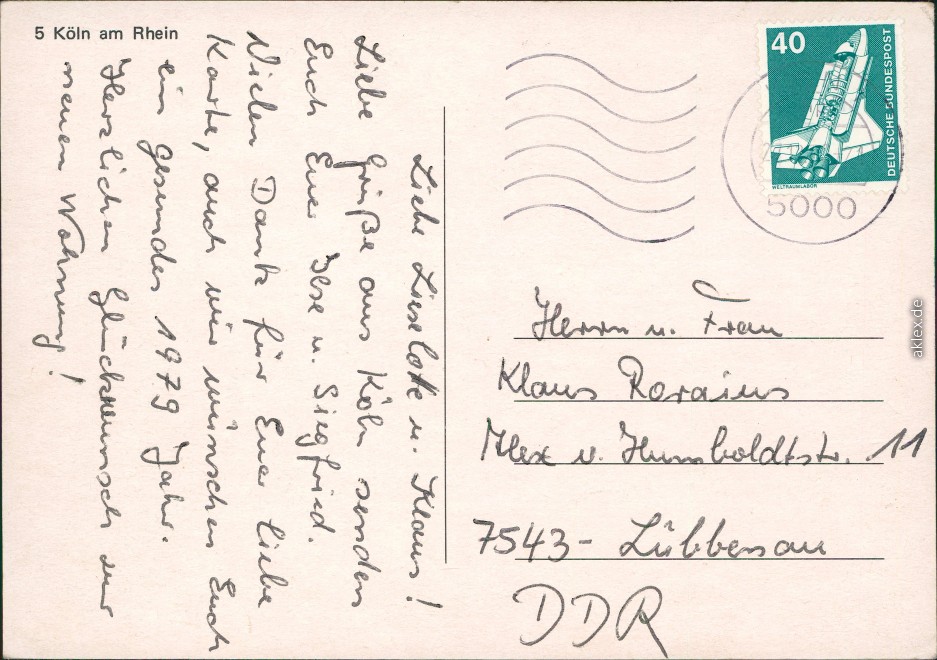 5 Köln am Rhein
Liebe Lieselotte u. Klaus!
Liebe Grüße aus Köln senden
Euch Eure Ilse u. Siegfried.
Vielen Dank für Eure liebe
Karte, auch wir wünschen Euch
ein gesundes 1979 Jahr.
Herzlichen Glückwunsch zur
neuen Wohnung!
40
DEUTSCHE BUNDESPOST
WELTRAUMLABOR
5000
Herrn u. Frau
Klaus
Alex v. Humboldtstr. 11
7543- Lübbenau
DDR
aklex.de